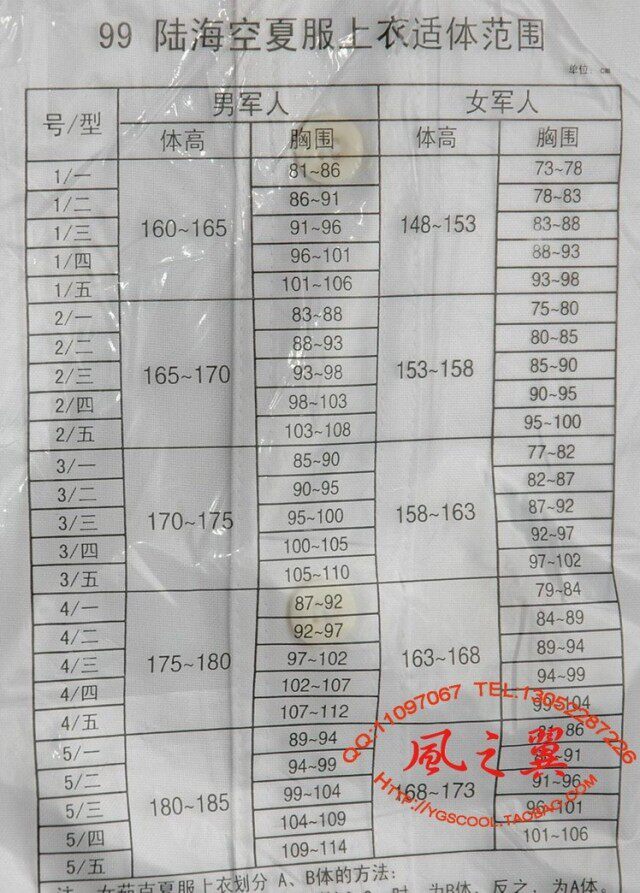 99 陆海空夏服上衣适体范围
单位: cm
号/型 男军人 女军人
体高 胸围 体高 胸围
1/一 160~165 81~86 148~153 73~78
1/二 86~91 78~83
1/三 91~96 83~88
1/四 96~101 88~93
1/五 101~106 93~98
2/一 165~170 83~88 153~158 75~80
2/二 88~93 80~85
2/三 93~98 85~90
2/四 98~103 90~95
2/五 103~108 95~100
3/一 170~175 85~90 158~163 77~82
3/二 90~95 82~87
3/三 95~100 87~92
3/四 100~105 92~97
3/五 105~110 97~102
4/一 175~180 87~92 163~168 79~84
4/二 92~97 84~89
4/三 97~102 89~94
4/四 102~107 94~99
4/五 107~112 99~104
5/一 180~185 89~94 168~173 81~86
5/二 94~99 86~91
5/三 99~104 91~96
5/四 104~109 96~101
5/五 109~114 101~106
QQ:11097067 TEL:13052287226
風之翼
HTTP://YGSCOOL.TAOBAO.COM
注: 女茄克夏服上衣划分 A、B体的方法:
时, 为B体, 反之, 为A体。